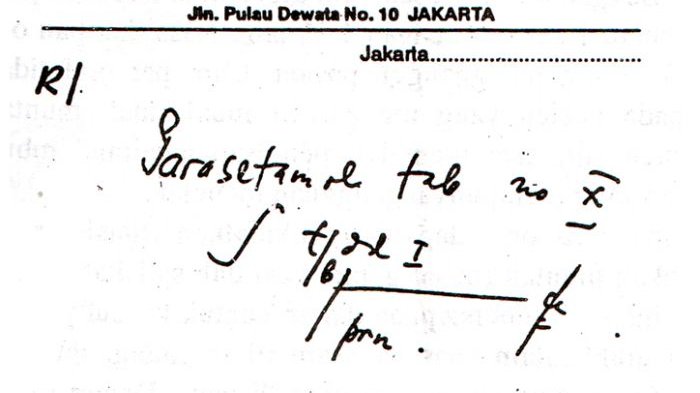 Jln. Pulau Dewata No. 10 JAKARTA
Jakarta...............................
R/
Parasetamol tab no X
∫ t dd I
prn.